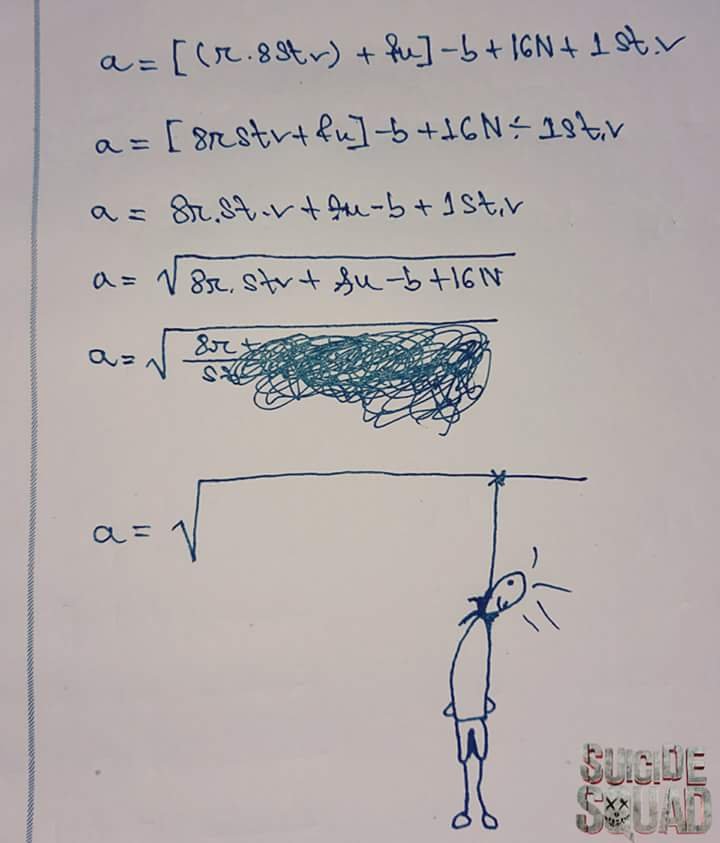 a = [(r.8stv) + fu] - b + 16N + 1st.v
a = [8rstv + fu] - b + 16N ÷ 1st,v
a = 8r.st.v + fu - b + 1st,v
a = √8r.stv + fu - b + 16N
a = √8r +
a = √
SUICIDE
SQUAD